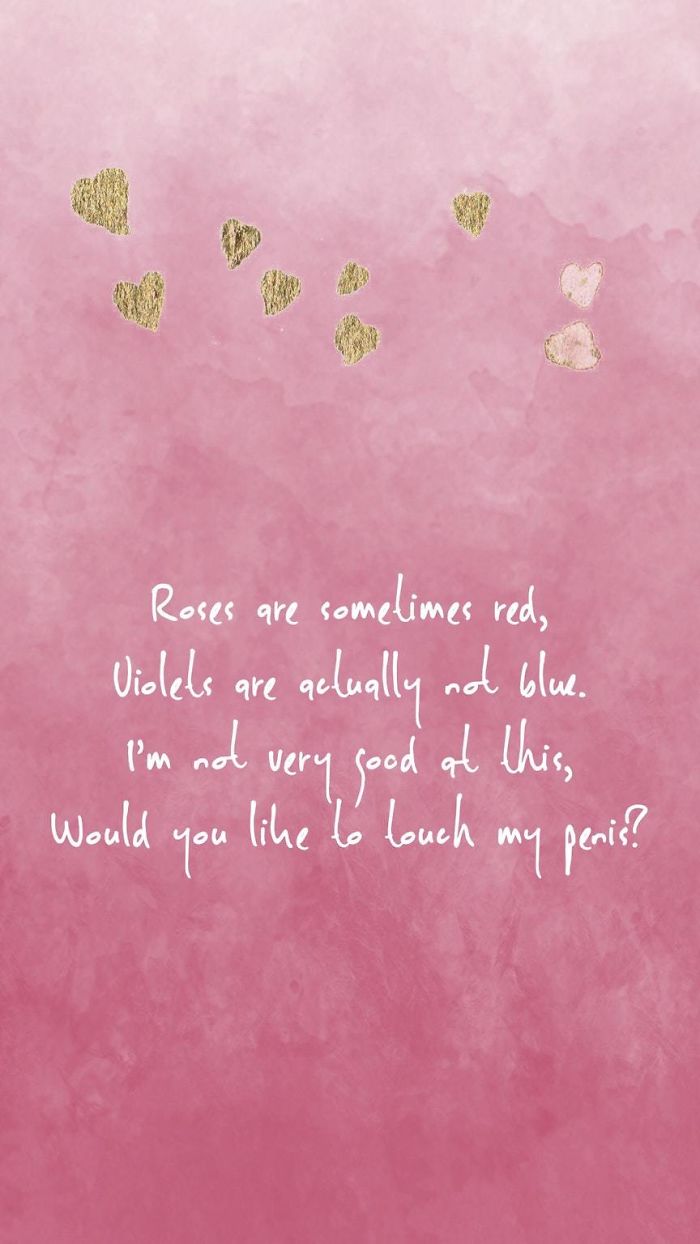 Roses are sometimes red,
Violets are actually not blue.
I'm not very good at this,
Would you like to touch my penis?